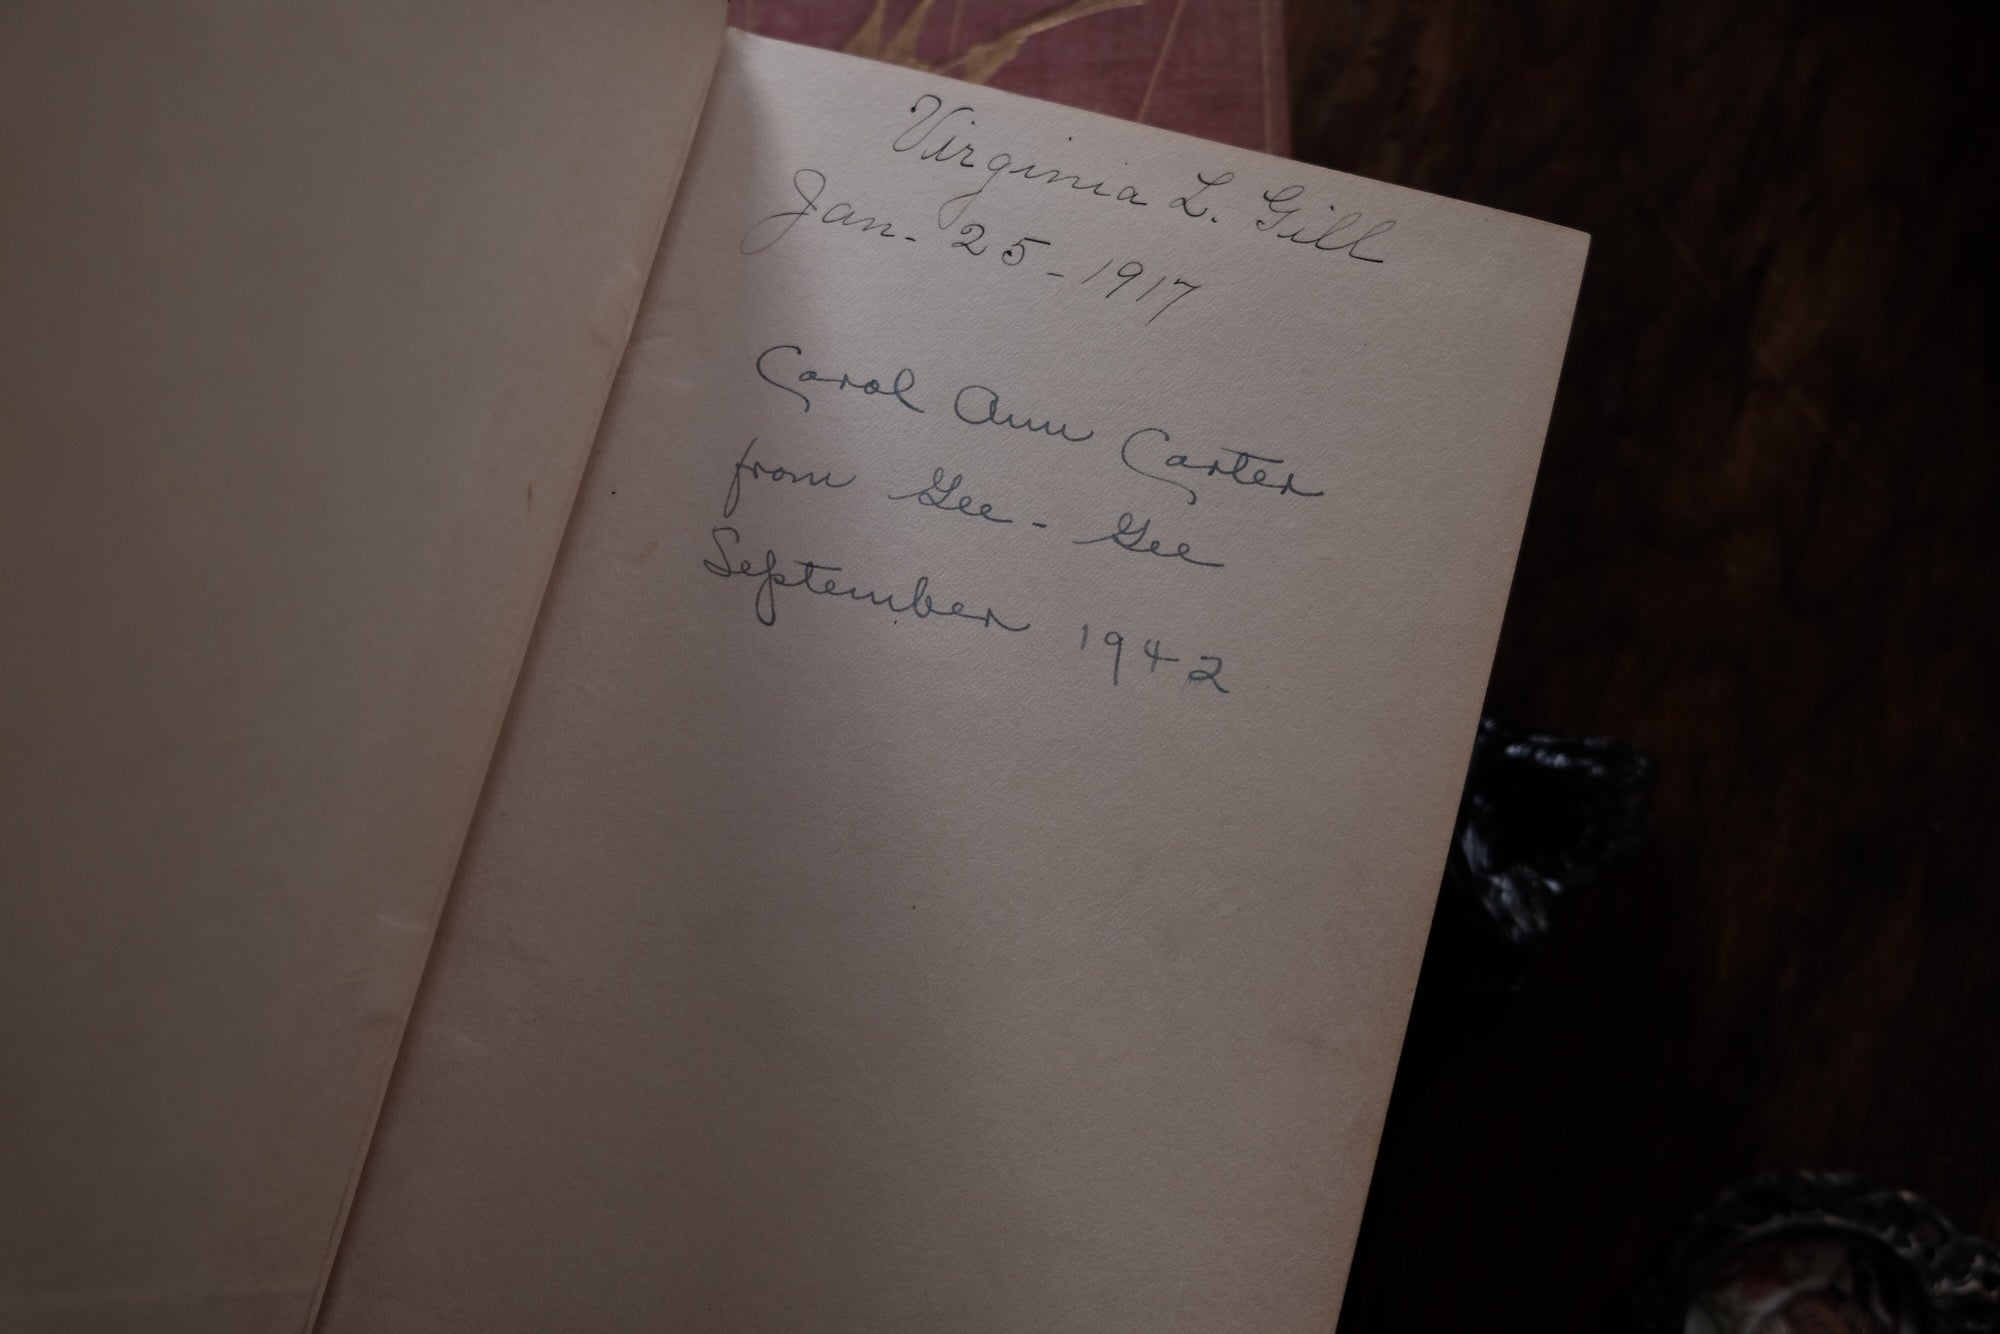 Virginia L. Gill
Jan. 25 - 1917
Carol Ann Carter
from Gee - Gee
September 1942